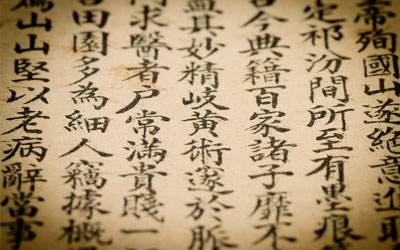 帝殉國山遂絕意進取
定祁汾間所至有墨痕
古今典籍百家諸子靡不
益其妙精岐黃術邃於脈
求醫者戶常滿貴賤一
田園多為細人竊據概
山山堅以老病辭當事